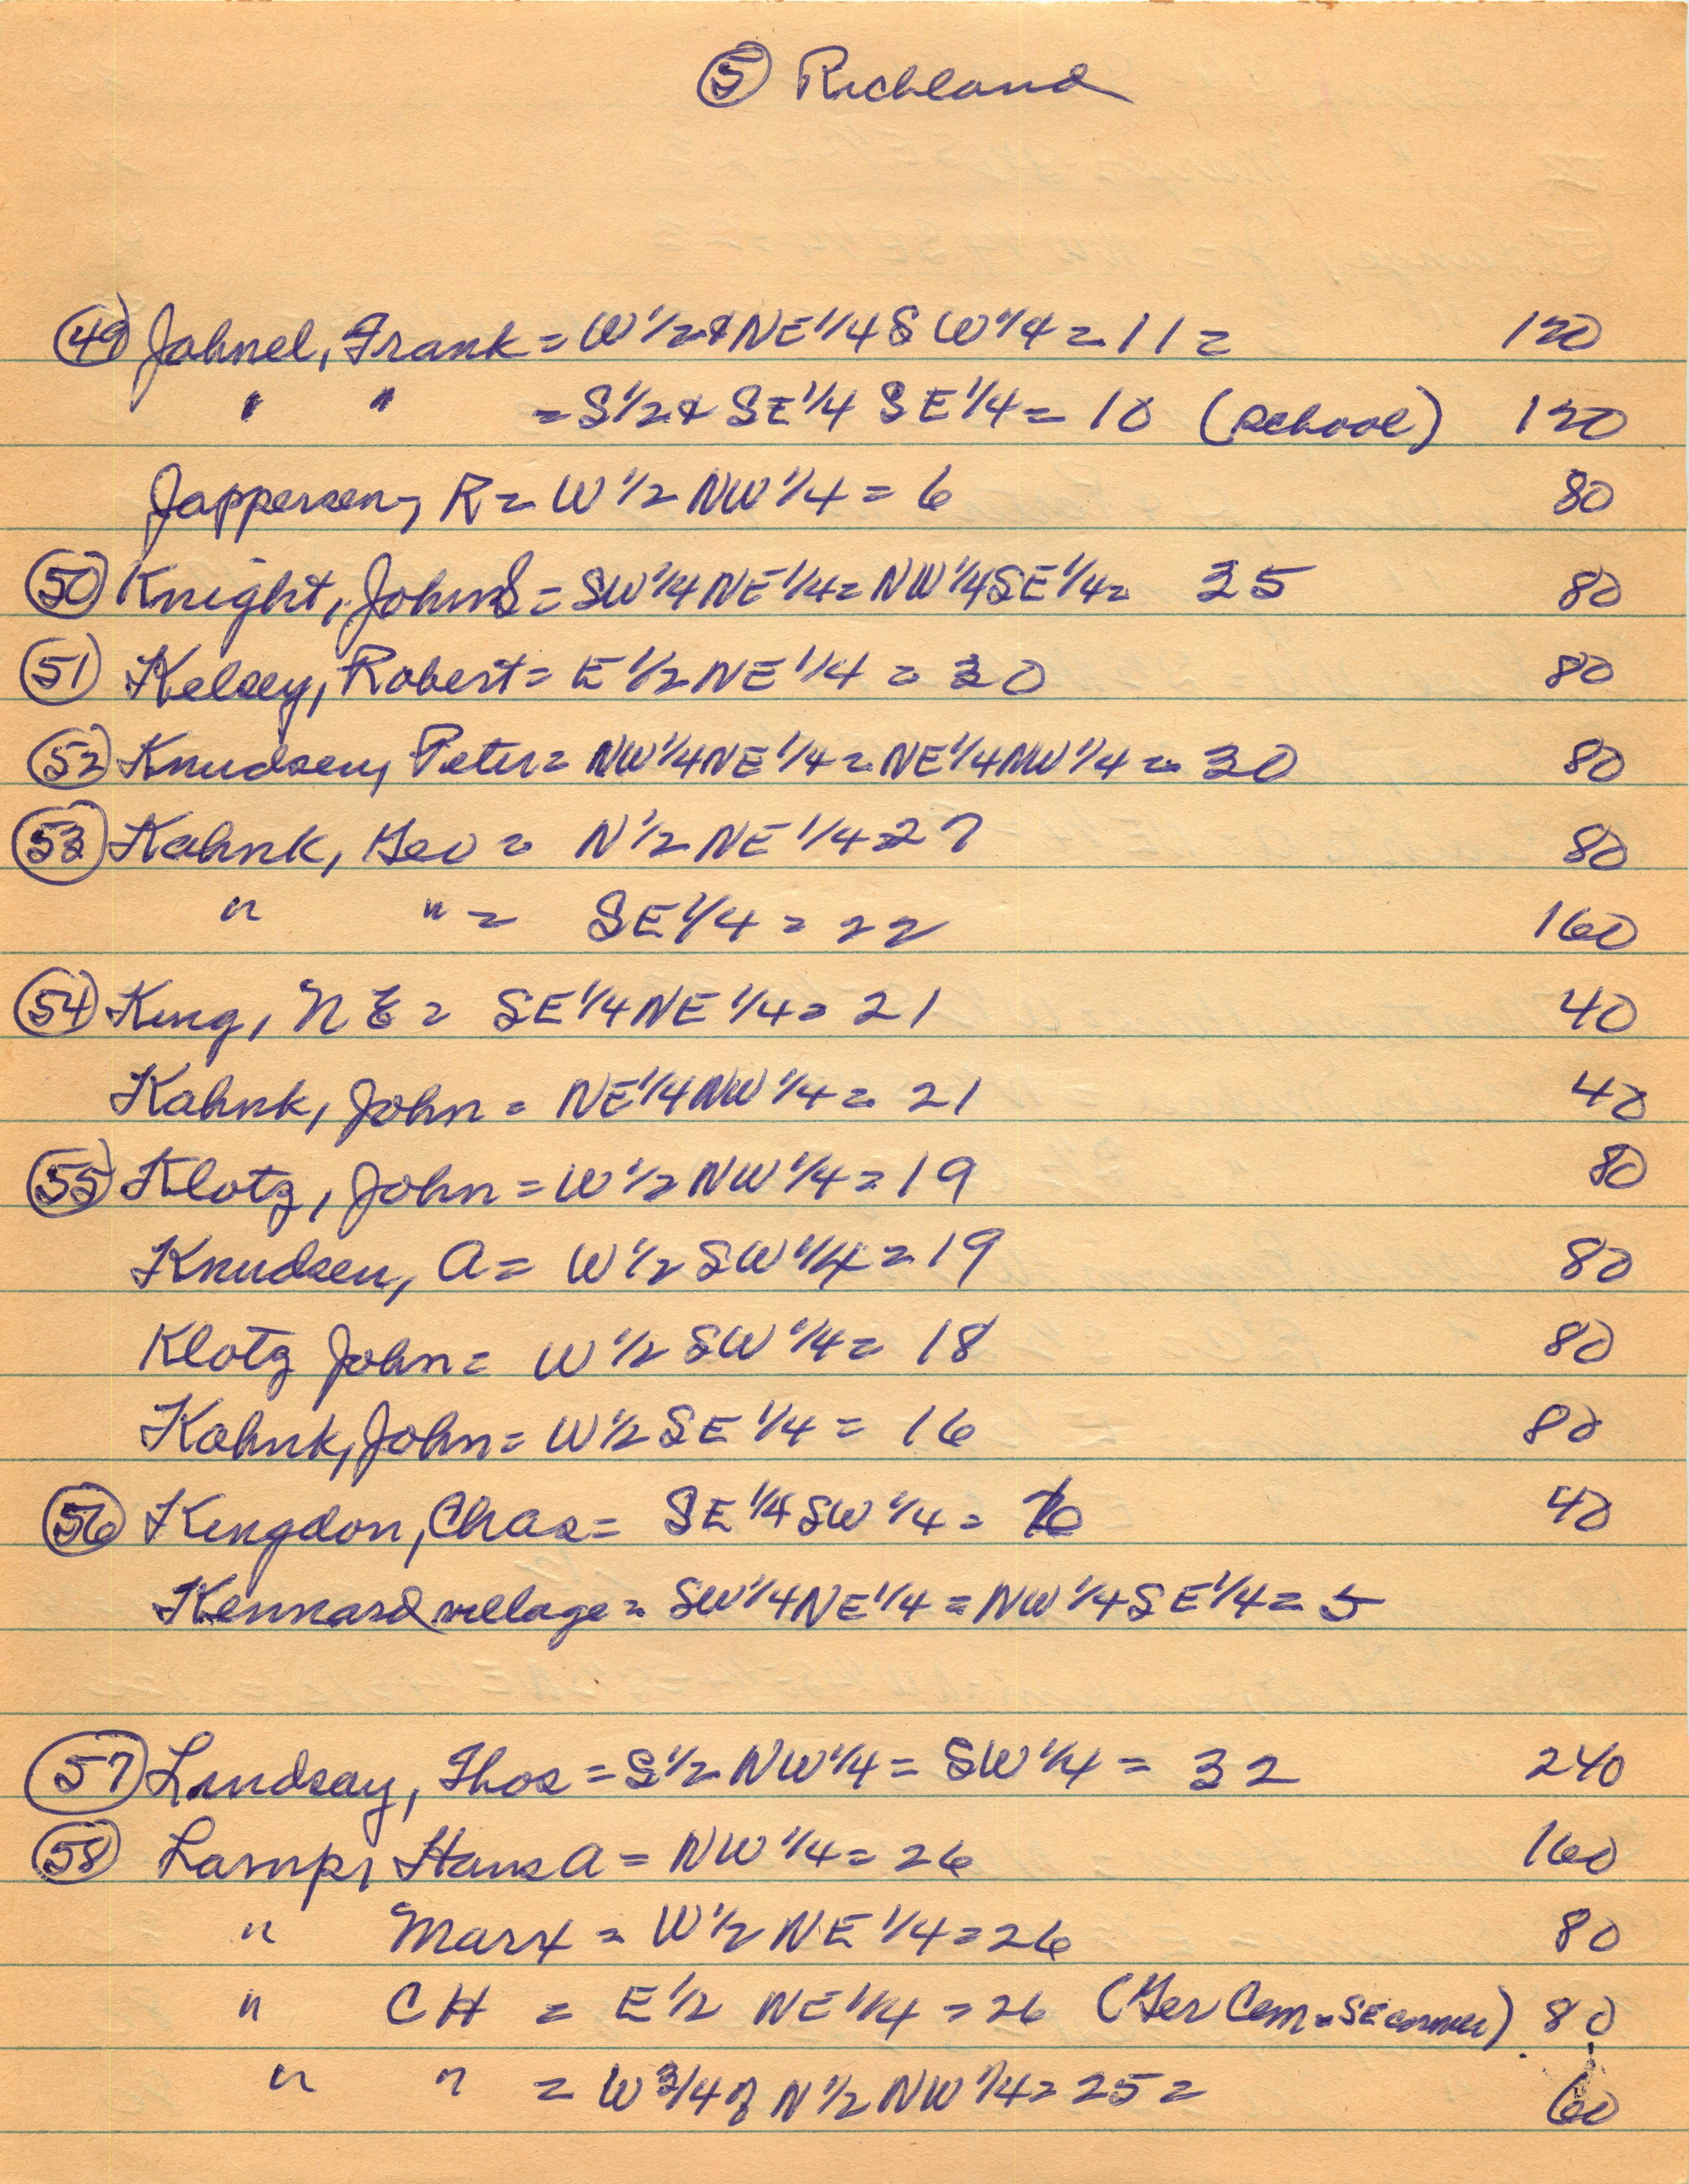 (5) Richland
(49) Jahnel, Frank = W 1/2 & NE 1/4 SW 1/4 = 11 = 120
" " = S 1/2 & SE 1/4 SE 1/4 = 10 (school) 120
Jappersen, R = W 1/2 NW 1/4 = 6 80
(50) Knight, John S = SW 1/4 NE 1/4 = NW 1/4 SE 1/4 = 35 80
(51) Kelsey, Robert = E 1/2 NE 1/4 = 30 80
(52) Knudsen, Peter = NW 1/4 NE 1/4 = NE 1/4 NW 1/4 = 30 80
(53) Kahnk, Geo = N 1/2 NE 1/4 = 27 80
" " = SE 1/4 = 22 160
(54) King, N E = SE 1/4 NE 1/4 = 21 40
Kahnk, John = NE 1/4 NW 1/4 = 21 40
(55) Klotz, John = W 1/2 NW 1/4 = 19 80
Knudsen, A = W 1/2 SW 1/4 = 19 80
Klotz John = W 1/2 SW 1/4 = 18 80
Kahnk, John = W 1/2 SE 1/4 = 16 80
(56) Kingdon, Chas = SE 1/4 SW 1/4 = 40
Kennard village = SW 1/4 NE 1/4 = NW 1/4 SE 1/4 = 5
(57) Lindsay, Thos = S 1/2 NW 1/4 = SW 1/4 = 32 240
(58) Lamp, Hans A = NW 1/4 = 26 160
" Marx = W 1/2 NE 1/4 = 26 80
" C H = E 1/2 NE 1/4 = 26 (Ger Cem = SE corner) 80
" " = W 3/4 of N 1/2 NW 1/4 = 25 = 60